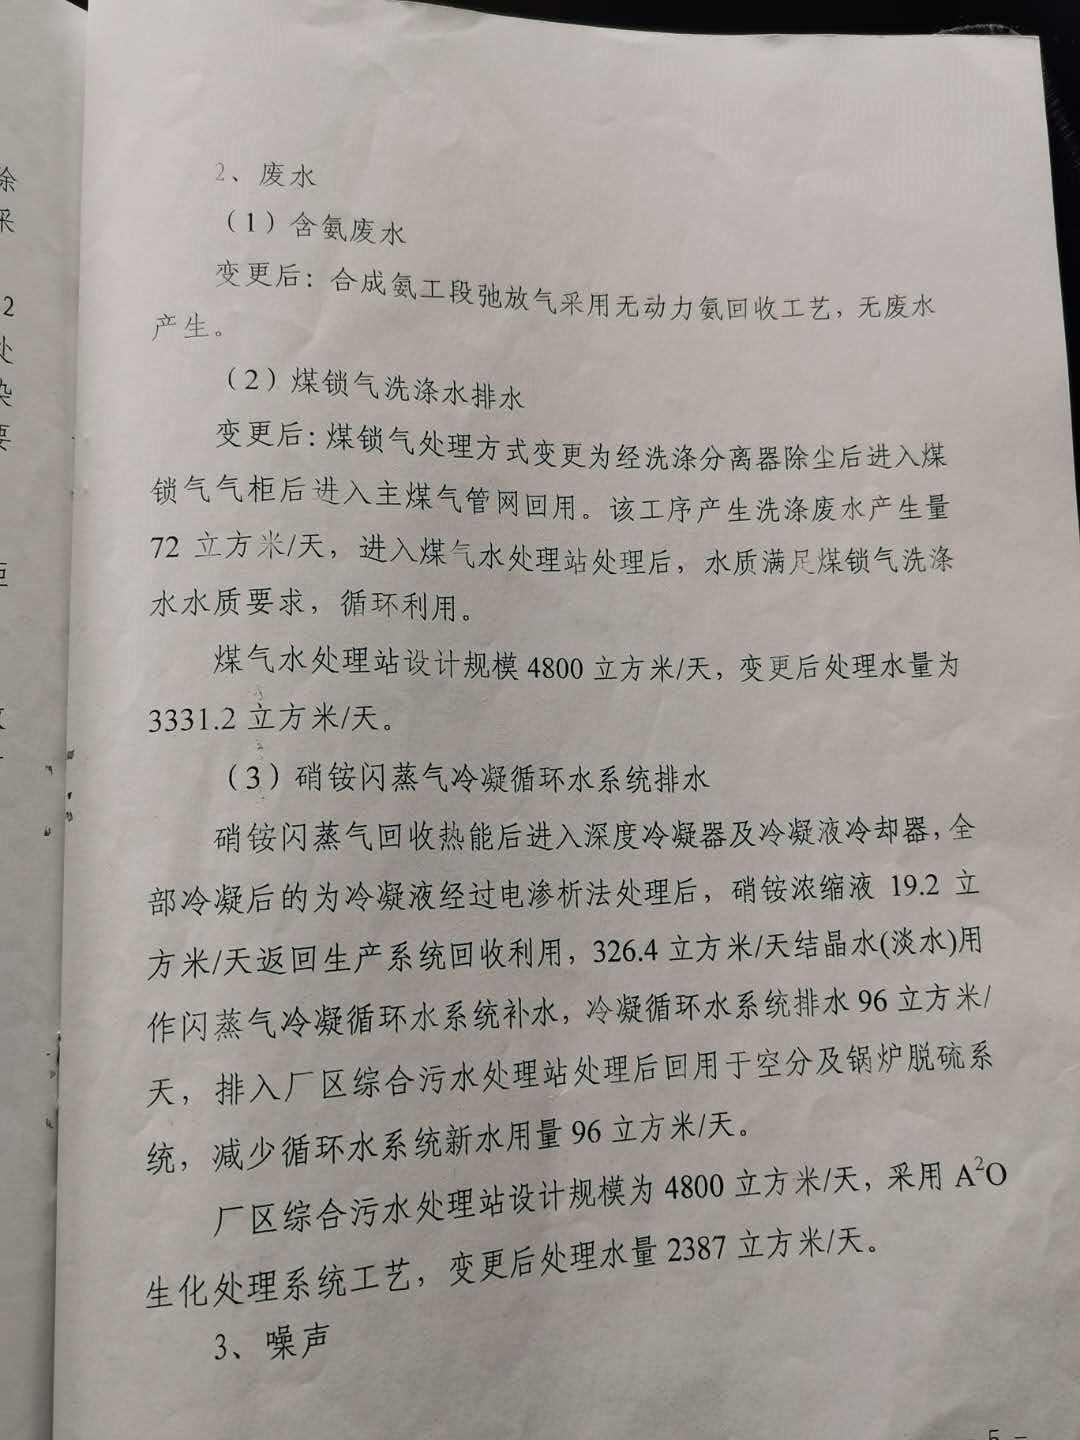 除
采
2
处
染
要
2、废水
（1）含氨废水
变更后：合成氨工段弛放气采用无动力氨回收工艺，无废水
产生。
（2）煤锁气洗涤水排水
变更后：煤锁气处理方式变更为经洗涤分离器除尘后进入煤
锁气气柜后进入主煤气管网回用。该工序产生洗涤废水产生量
72 立方米/天，进入煤气水处理站处理后，水质满足煤锁气洗涤
水水质要求，循环利用。
煤气水处理站设计规模 4800 立方米/天，变更后处理水量为
3331.2 立方米/天。
（3）硝铵闪蒸气冷凝循环水系统排水
硝铵闪蒸气回收热能后进入深度冷凝器及冷凝液冷却器，全
部冷凝后的为冷凝液经过电渗析法处理后，硝铵浓缩液 19.2 立
方米/天返回生产系统回收利用，326.4 立方米/天结晶水(淡水)用
作闪蒸气冷凝循环水系统补水，冷凝循环水系统排水 96 立方米/
天，排入厂区综合污水处理站处理后回用于空分及锅炉脱硫系
统，减少循环水系统新水用量 96 立方米/天。
厂区综合污水处理站设计规模为 4800 立方米/天，采用 A²O
生化处理系统工艺，变更后处理水量 2387 立方米/天。
3、噪声
5 -